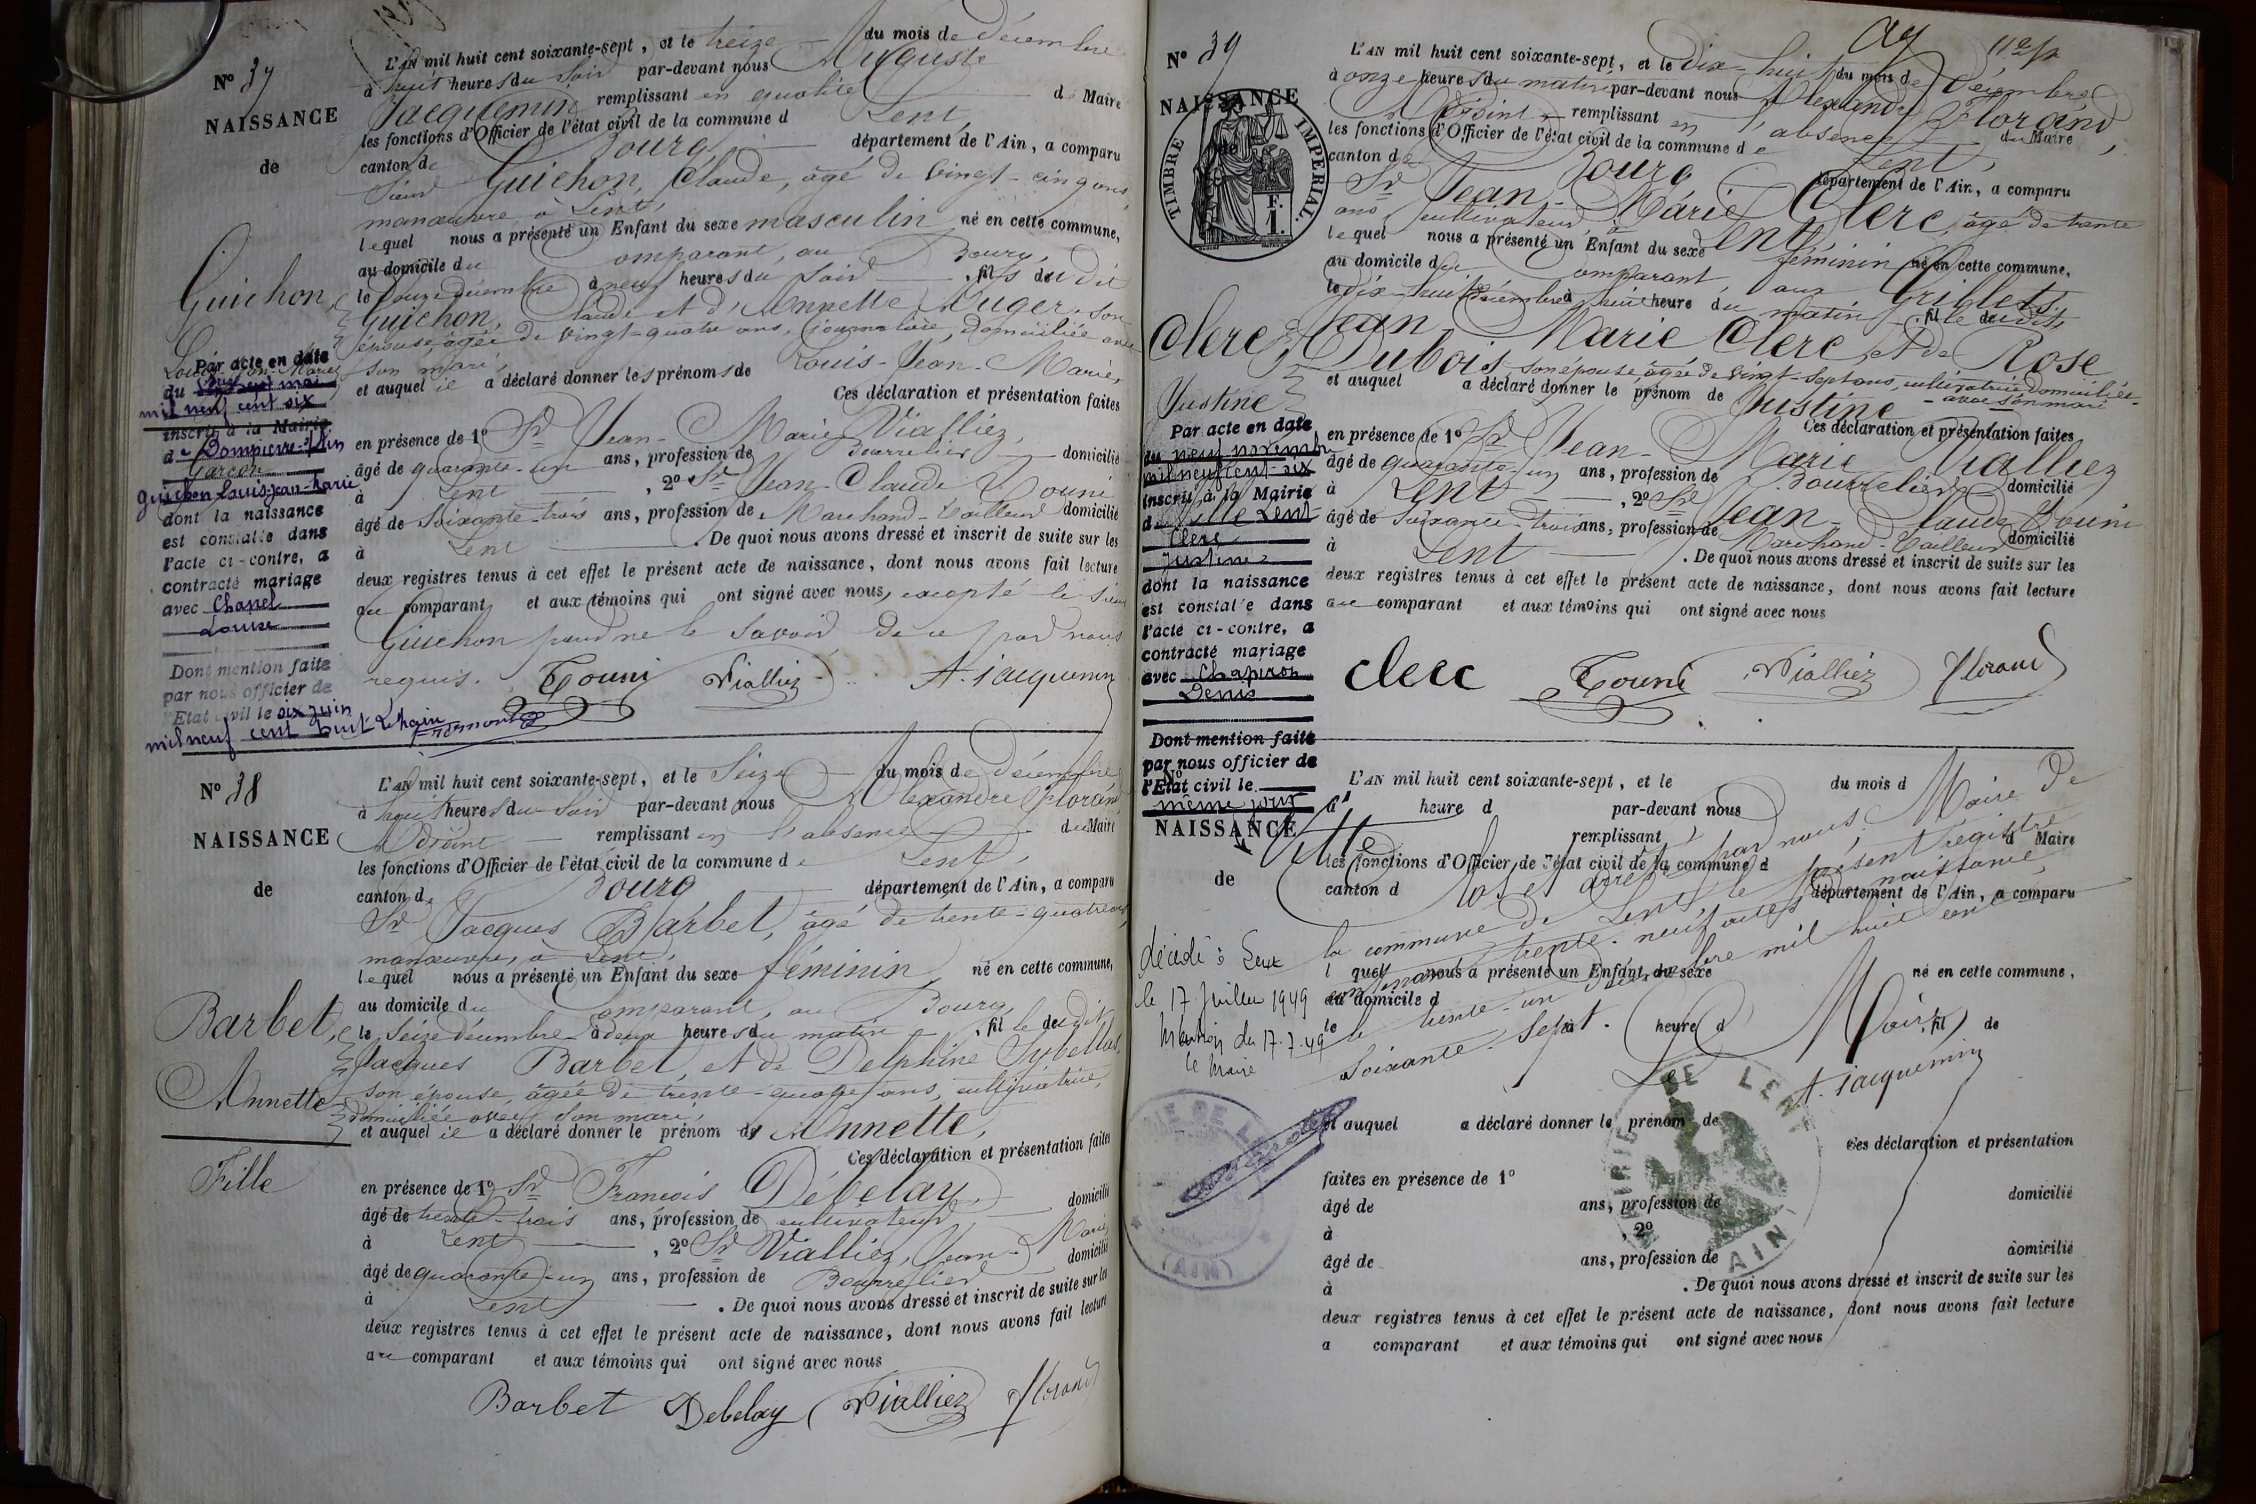 N° 37
NAISSANCE
de
Guichon,
Louis-Jean-Marie
Par acte en date
du
mil neuf cent six
inscrit à la Mairie
de Dompierre s/Ain
Garçon
Guichon Louis-Jean-Marie
dont la naissance
est constatée dans
l'acte ci-contre, a
contracté mariage
avec Chanel
Louise
Dont mention faite
par nous officier de
l'Etat civil le six juin
mil neuf cent huit
L'AN mil huit cent soixante-sept, et le treize du mois de décembre
à huit heures du soir par-devant nous Auguste
Jacquemin remplissant en qualité de Maire
les fonctions d'Officier de l'état civil de la commune d Lent,
canton de Bourg département de l'Ain, a comparu
Sieur Guichon, Claude, âgé de vingt-cinq ans,
manœuvre à Lent,
lequel nous a présenté un Enfant du sexe masculin né en cette commune,
au domicile du comparant, au Bourg,
le douze décembre à neuf heures du soir, fils du dit
Guichon, Claude et d'Annette Auger, son
épouse, âgée de vingt-quatre ans, journalière, domiciliée avec
son mari,
et auquel il a déclaré donner les prénoms de Louis-Jean-Marie,
Ces déclaration et présentation faites
en présence de 1° Sr Jean-Marie Vialliez,
âgé de quarante-un ans, profession de Bourrelier domicilié
à Lent, 2° Sr Jean-Claude Touni
âgé de soixante-trois ans, profession de Marchand-tailleur domicilié
à Lent. De quoi nous avons dressé et inscrit de suite sur les
deux registres tenus à cet effet le présent acte de naissance, dont nous avons fait lecture
au comparant et aux témoins qui ont signé avec nous, excepté le sieur
Guichon pour ne le savoir de ce par nous
requis. Touni Vialliez A. Jacquemin
N° 38
NAISSANCE
de
Barbet,
Annette
Fille
L'AN mil huit cent soixante-sept, et le seize du mois de décembre
à huit heures du soir par-devant nous Alexandre Florand
Adjoint remplissant en l'absence du Maire
les fonctions d'Officier de l'état civil de la commune de Lent,
canton de Bourg département de l'Ain, a comparu
Sr Jacques Barbet, âgé de trente-quatre ans,
manœuvre, à Lent,
lequel nous a présenté un Enfant du sexe féminin né en cette commune,
au domicile du comparant, au Bourg,
le seize décembre à deux heures du matin, fille du dit
Jacques Barbet, et de Delphine
son épouse, âgée de trente-quatre ans, cultivatrice,
domiciliée avec son mari,
et auquel il a déclaré donner le prénom de Annette,
Ces déclaration et présentation faites
en présence de 1° Sr François Débelay, domicilié
âgé de trente-trois ans, profession de cultivateur
à Lent, 2° Sr Vialliez, Jean-Marie
âgé de quarante-un ans, profession de Bourrelier domicilié
à Lent. De quoi nous avons dressé et inscrit de suite sur les
deux registres tenus à cet effet le présent acte de naissance, dont nous avons fait lecture
au comparant et aux témoins qui ont signé avec nous
Barbet Debelay Vialliez Florand
N° 39
NAISSANCE
de
TIMBRE IMPERIAL.
F. 1.
Clerc,
Justine
Par acte en date
du neuf novembre
mil neuf cent six
inscrit à la Mairie
de Lent
Clerc
Justine
dont la naissance
est constatée dans
l'acte ci-contre, a
contracté mariage
avec Chapiron
Denis
Dont mention faite
par nous officier de
l'Etat civil le
même jour
L'AN mil huit cent soixante-sept, et le dix-huit du mois de Décembre
à onze heures du matin par-devant nous Alexandre Florand,
Adjoint remplissant en l'absence du Maire
les fonctions d'Officier de l'état civil de la commune de Lent,
canton de Bourg département de l'Ain, a comparu
Sr Jean-Marie Clerc, âgé de trente
ans, cultivateur, à Lent,
lequel nous a présenté un Enfant du sexe féminin né en cette commune,
au domicile du comparant, aux Grillets,
le dix-huit décembre à huit heure du matin, fille du dit
Jean Marie Clerc, et de Rose
Dubois, son épouse, âgée de vingt-sept ans, cultivatrice domiciliée
avec son mari
et auquel a déclaré donner le prénom de Justine
Ces déclaration et présentation faites
en présence de 1° Sr Jean-Marie Vialliez
âgé de quarante-un ans, profession de Bourrelier domicilié
à Lent, 2° Sr Jean-Claude Touni
âgé de soixante-trois ans, profession de Marchand-tailleur domicilié
à Lent. De quoi nous avons dressé et inscrit de suite sur les
deux registres tenus à cet effet le présent acte de naissance, dont nous avons fait lecture
au comparant et aux témoins qui ont signé avec nous
Clerc Touni Vialliez Florand
N°
NAISSANCE
de
décédé à Lent
le 17 juillet 1949
Mention du 17-7-49
le Maire
L'AN mil huit cent soixante-sept, et le du mois d
à heure d par-devant nous
remplissant d Maire
les fonctions d'Officier de l'état civil de la commune d
canton d département de l'Ain, a comparu
l quel nous a présenté un Enfant du sexe né en cette commune,
au domicile d
le à heure d, fil de
et auquel a déclaré donner le prénom de
Ces déclaration et présentation
faites en présence de 1°
âgé de ans, profession de domicilié
à, 2°
âgé de ans, profession de domicilié
à. De quoi nous avons dressé et inscrit de suite sur les
deux registres tenus à cet effet le présent acte de naissance, dont nous avons fait lecture
a comparant et aux témoins qui ont signé avec nous
Clos et arrêté par nous, Maire de
la commune de Lent le présent registre
contenant trente-neuf actes de naissance,
le trente-un Décembre mil huit cent
soixante-sept.
Le Maire,
A. Jacquemin
MAIRIE DE LENT
AIN
(AIN)